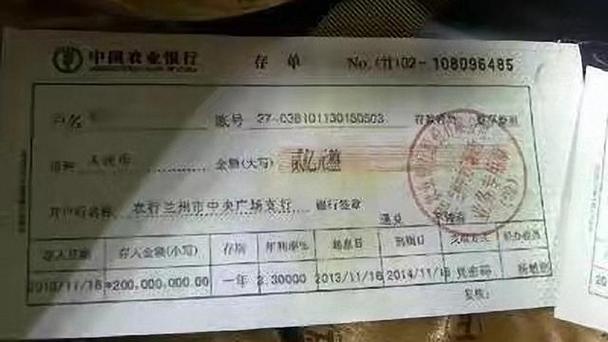 中国农业银行 存单 No.(甘)02-108096485
户名 账号 27-038101130150503
币种 人民币 金额(大写) 贰亿元整
开户行名称 农行兰州市中央广场支行 银行签章
通兑
存入日期 存入金额(小写) 存期 年利率% 起息日 到期日 支取方式 经办柜员
2013/11/18 *200,000,000.00 一年 3.30000 2013/11/18 2014/11/18 凭密码
复核: